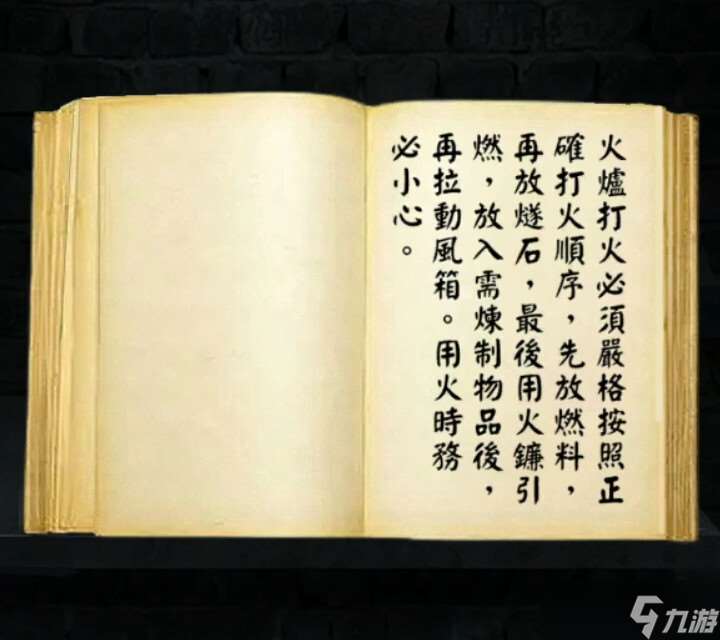 火爐打火必須嚴格按照正
確打火順序，先放燃料，
再放燧石，最後用火鐮引
燃，放入需煉制物品後，
再拉動風箱。用火時務
必小心。
九游